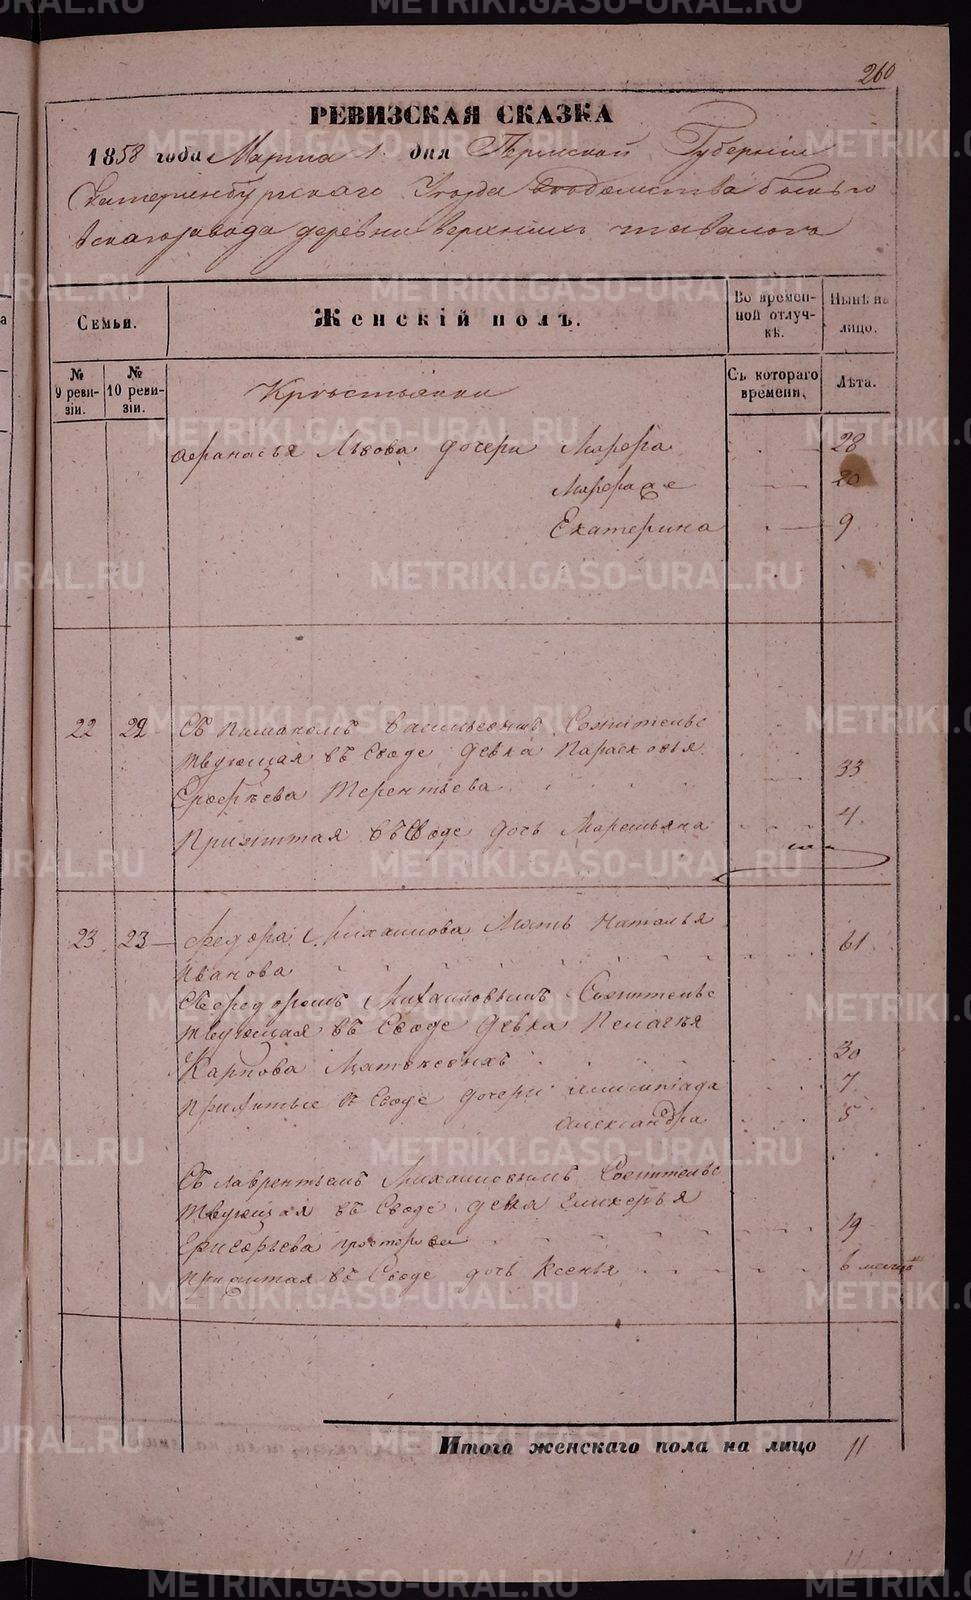 260
РЕВИЗСКАЯ СКАЗКА
1858 года Марта 1 дня Пермской Губерніи
Екатеринбургскаго Уезда
завода деревни верхнихъ
Семьи.
Женскій полъ.
Во времен-
ной отлуч-
кѣ.
Нынѣ на
лицо.
№
9 реви-
зіи.
№
10 реви-
зіи.
Съ котораго
времени.
Лѣта.
Крестьянки
Афанасья Львова дочери Марфа 28
20
Екатерина 9
22 22 Съ Васильевымъ Сожительс
твующая въ Сводѣ девка Парасковья
Терентьева 33
Прижитая въ Сводѣ дочь Маремьяна 4
23 23 Федора Михаилова Мать Наталья
Иванова 61
Съ Федоромъ Михаиловымъ Сожительс
твующая въ Сводѣ девка Пелагья
Карпова 30
Прижитые въ Сводѣ дочери 7
Александра 5
Съ Лаврентьемъ Михаиловымъ Сожительс
твующая въ Сводѣ девка Гликерья
Григорьева 19
Прижитая въ Сводѣ дочь Ксенья 6
Итого женскаго пола на лицо 11
METRIKI.GASO-URAL.RU